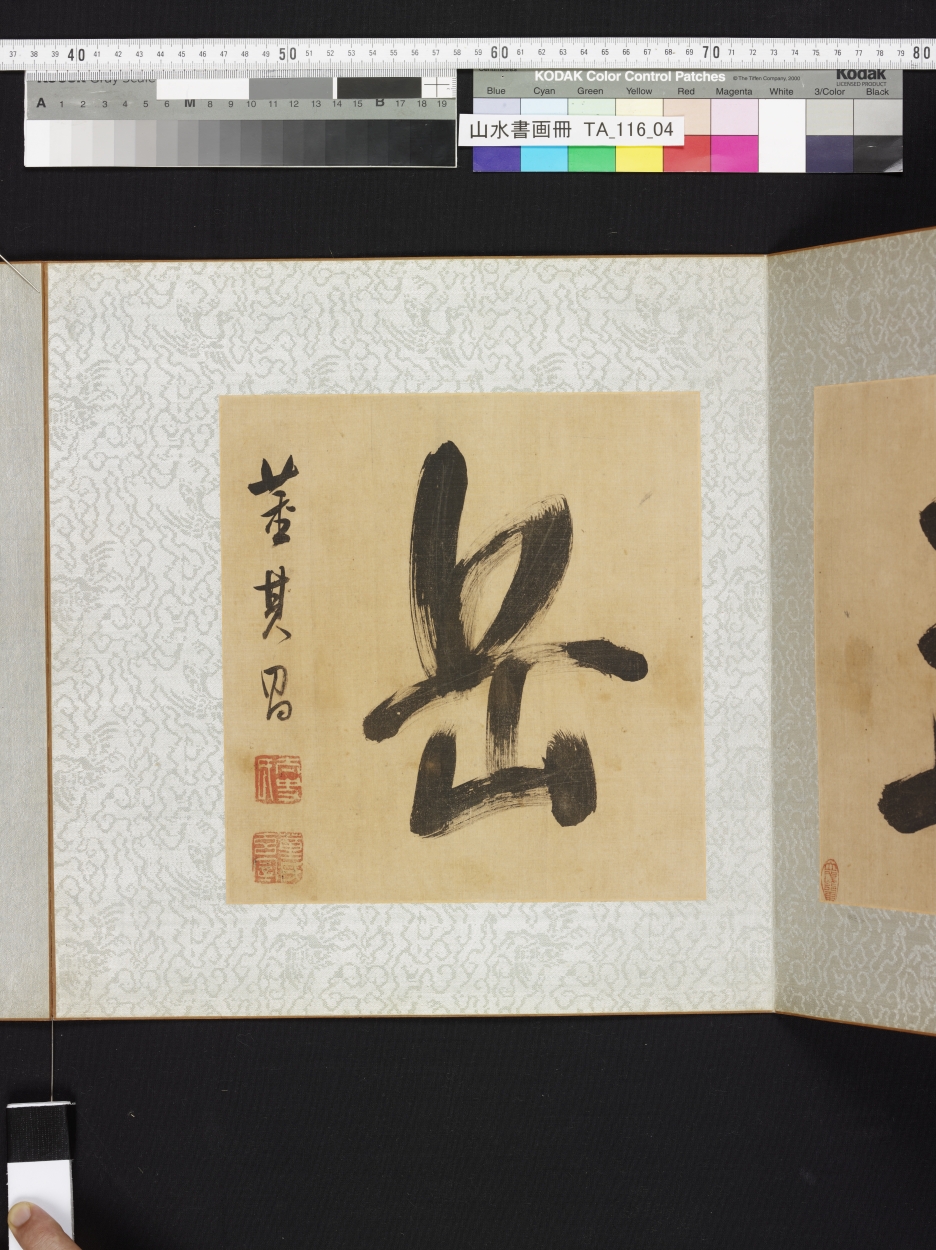 37 38 39 40 41 42 43 44 45 46 47 48 49 50 51 52 53 54 55 56 57 58 59 60 61 62 63 64 65 66 67 68 69 70 71 72 73 74 75 76 77 78 79 80
KODAK Color Control Patches © The Tiffen Company, 2000 Kodak
LICENSED PRODUCT
Blue Cyan Green Yellow Red Magenta White 3/Color Black
A 1 2 3 4 5 6 M 8 9 10 11 12 13 14 15 B 17 18 19
山水書画冊 TA_116_04
岳
董其昌